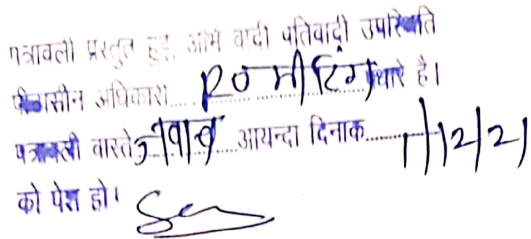 पत्रावली प्रस्तुत हुई आज वादी प्रतिवादी उपस्थिति
पीठासीन अधिकारी.... रा० मीटिंग पधारे है।
पत्रावली वास्ते जवाब आयन्दा दिनाक..... 1/12/21
को पेश हो।